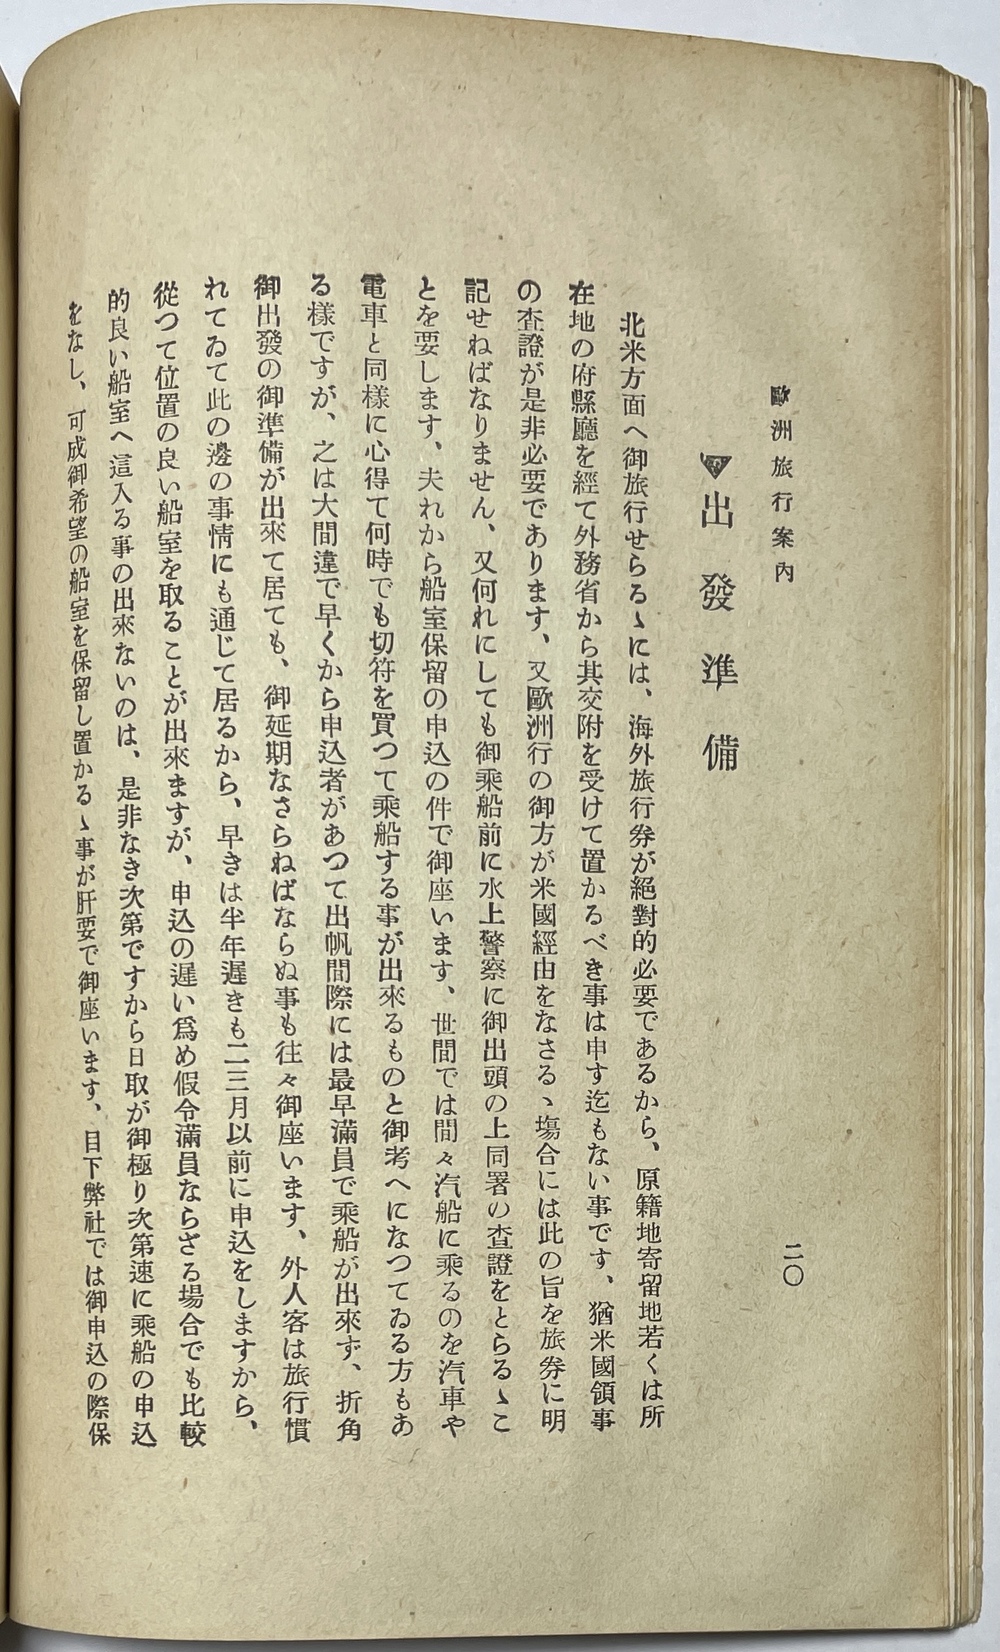 歐洲旅行案內
二〇
出發準備
北米方面へ御旅行せらるゝには、海外旅行券が絕對的必要であるから、原籍地寄留地若くは所
在地の府縣廳を經て外務省から其交附を受けて置かるべき事は申す迄もない事です、猶米國領事
の査證が是非必要であります、又歐洲行の御方が米國經由をなさるゝ塲合には此の旨を旅券に明
記せねばなりません、又何れにしても御乘船前に水上警察に御出頭の上同署の査證をとらるゝこ
とを要します、夫れから船室保留の申込の件で御座います、世間では間々汽船に乘るのを汽車や
電車と同樣に心得て何時でも切符を買つて乘船する事が出來るものと御考へになつてゐる方もあ
る樣ですが、之は大間違で早くから申込者があつて出帆間際には最早滿員で乘船が出來ず、折角
御出發の御準備が出來て居ても、御延期なさらねばならぬ事も往々御座います、外人客は旅行慣
れてゐて此の邊の事情にも通じて居るから、早きは半年遲きも二三月以前に申込をしますから、
從つて位置の良い船室を取ることが出來ますが、申込の遲い爲め假令滿員ならざる場合でも比較
的良い船室へ這入る事の出來ないのは、是非なき次第ですから日取が御極り次第速に乘船の申込
をなし、可成御希望の船室を保留し置かるゝ事が肝要で御座います、目下弊社では御申込の際保